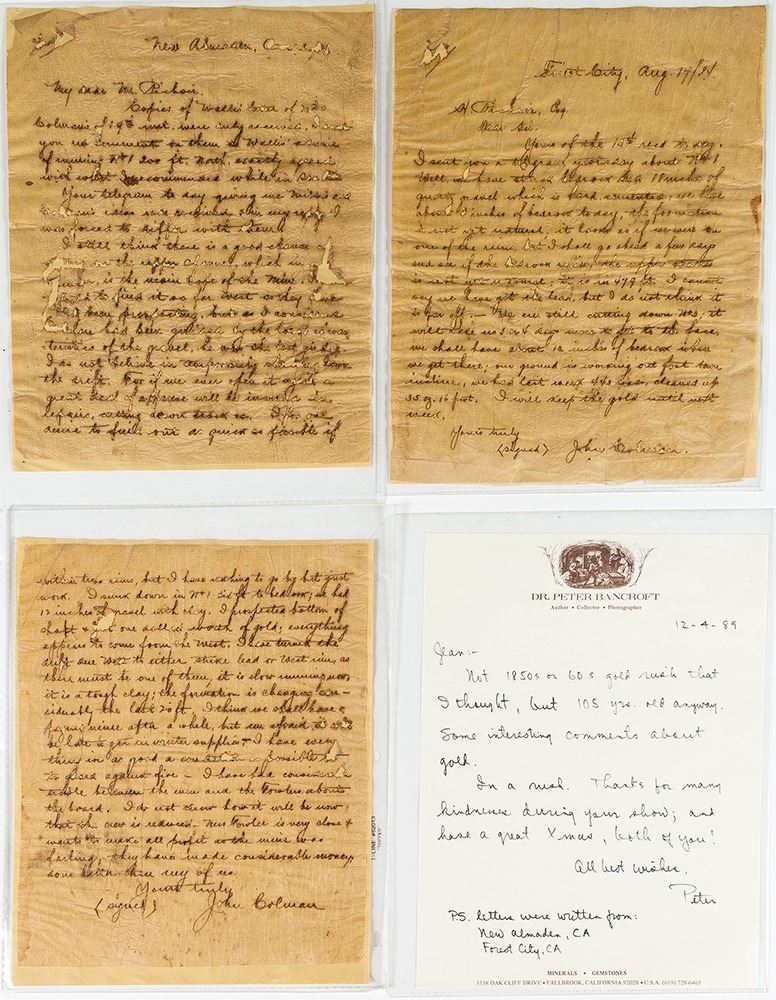 New Almaden,
My dear Mr.
Copies of Wallis' letter of
Colman's of 19th inst. were duly received. I
you no comment on them as Wallis' advice
of running No 1 200 ft. North, exactly agreed
with what I recommended while in
Your telegram to day giving me
views was received & in my reply I
was forced to differ with them.
I still think there is a good chance of
on the upper channel, which in
is the main hope of the mine. I
to find it as far West as they have
been prospecting, but as I
had been guided by the
of the gravel, he was the best judge.
I do not believe in
the drift. For if we ever open it again a
great deal of expense will be incurred in
repairs, cutting down track &c. I for one
desire to find out as quick as possible if
Forest City, Aug. 17/84.
Esq.
Dear Sir.
Yours of the 15th recd to day.
I sent you a telegram yesterday about No 1
Well, we have struck bedrock and 18 inches of
quartz gravel which is hard cemented; we have
about 7 inches of bedrock today, the formation
is not yet natural, it looks as if we were on
one of the rims, but I shall go ahead a few days
and see if the bedrock
is not yet natural; it is in 479 ft. I cannot
say we have got the lead, but I do not think it
is far off. We are still cutting down No 3, it
will take us 3 or 4 days more to get to the face,
we shall have about 12 inches of bedrock when
we get there; our ground is working out fast
we had last week 446 loads, cleaned up
35 oz. 16 pwt. I will keep the gold until next
week.
Yours truly
(signed) John Colman.
within two rims, but I have nothing to go by but just
work. I sunk down in No 1 six ft to bedrock; we had
12 inches of gravel with clay. I prospected bottom of
shaft & got one dollar's worth of gold; everything
appears to come from the West. I have turned the
drift due West to either strike lead or West rim, as
there must be one of them, it is slow running now,
it is a tough clay; the formation is changing con-
siderably the last 20 ft. I think we shall have a
paying mine after a while, but am afraid it will
be late to get in winter supplies. I have every
thing in as good a condition as possible
to guard against fire – I have had considerable
trouble between the men and the Fowlers about
the board. I do not know how it will be now
that the crew is reduced. Mrs Fowler is very close &
wants to make all profit as the mine was
failing; they have made considerable money,
done better than any of us.
Yours truly
(signed) John Colman
DR. PETER BANCROFT
Author • Collector • Photographer
12-4-89
Jean:-
Not 1850s or 60s gold rush that
I thought, but 105 yrs. old anyway.
Some interesting comments about
gold.
In a rush. Thanks for many
kindnesses during your show; and
have a great Xmas, both of you!
All best wishes,
Peter
P.S. letters were written from:
New Almaden, CA
Forest City, CA
MINERALS • GEMSTONES
3538 OAK CLIFF DRIVE • FALLBROOK, CALIFORNIA 92028 • U.S.A. (619) 728-6465